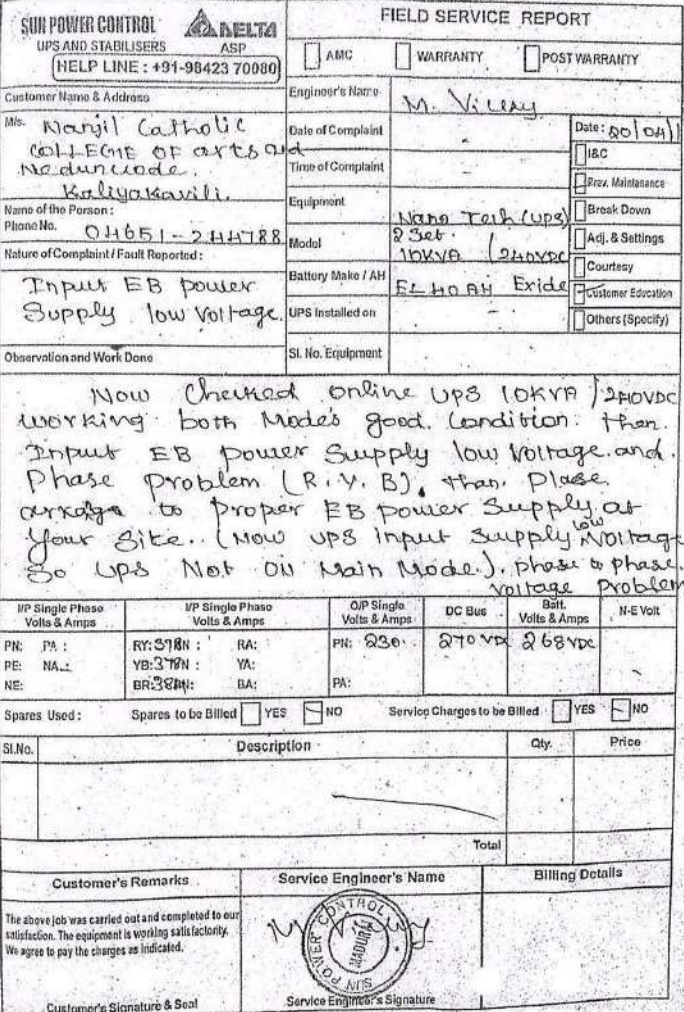 SUN POWER CONTROL
UPS AND STABILISERS
DELTA
ASP
HELP LINE : +91-98423 70080
FIELD SERVICE REPORT
AMC
WARRANTY
POST WARRANTY
Customer Name & Address
M/s. Nanjil Catholic
COLLEGE OF arts and
Kaliyakavili.
Name of the Person :
Phone No. 04651-244788
Nature of Complaint / Fault Reported :
Input EB power
Supply low Voltage.
Engineer's Name
Date of Complaint
Time of Complaint
Equipment Nano Tech (UPS)
Model 2 Set
10KVA / 240VDC
Battery Make / AH 40 AH Exide
UPS Installed on
Sl. No. Equipment
Date : 20/04/
I&C
Prev. Maintenance
Break Down
Adj. & Settings
Courtesy
Customer Education
Others (Specify)
Observation and Work Done
Now Checked online UPS 10KVA / 240VDC
working both Mode's good. Condition. then.
Input EB power Supply low Voltage. and.
Phase Problem (R.Y.B), than. Plase.
to Proper EB power Supply. at
Your Site.. (Now UPS input Supply low Voltage
So UPS Not ON Main Mode.). phase to phase.
voltage problem
I/P Single Phase
Volts & Amps
I/P Single Phase
Volts & Amps
O/P Single
Volts & Amps
DC Bus
Batt.
Volts & Amps
N-E Volt
PN: PA :
RY: 378N : RA:
PN: 230.
270 VDC
268 VDC
PE: NA :
YB: 379N : YA:
NE:
BR: BA:
PA:
Spares Used :
Spares to be Billed
YES
NO
Service Charges to be Billed
YES
NO
Sl.No.
Description
Qty.
Price
Total
Customer's Remarks
Service Engineer's Name
Billing Details
The above job was carried out and completed to our
satisfaction. The equipment is working satisfactorily.
We agree to pay the charges as indicated.
SUN POWER CONTROL
MADURAI
Customer's Signature & Seal
Service Engineer's Signature